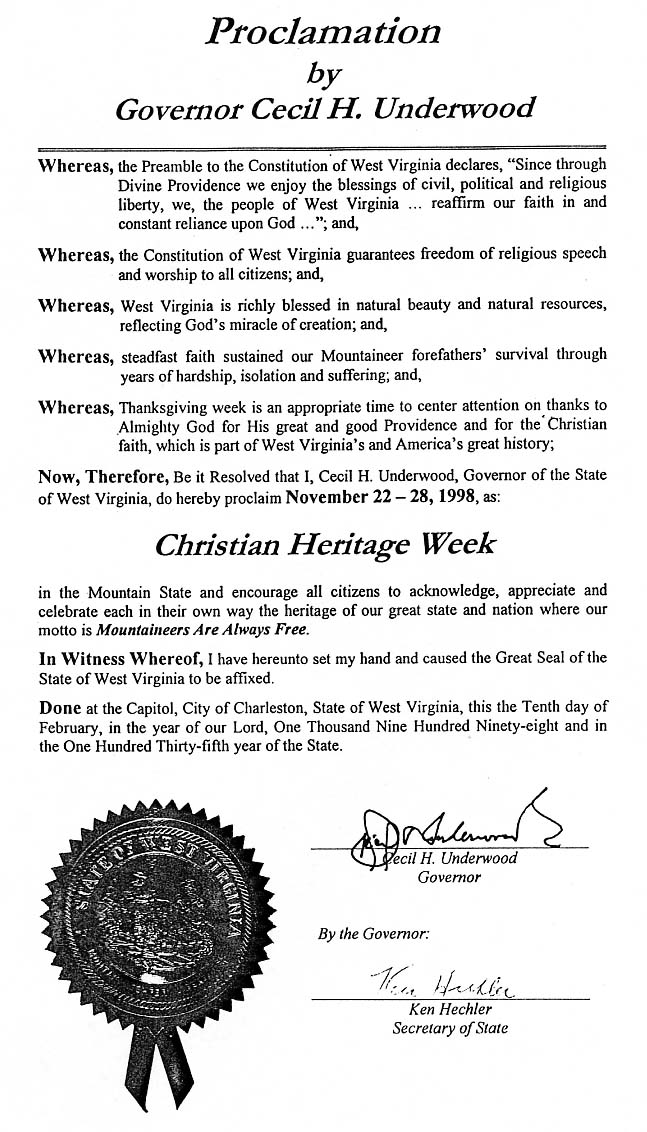 Proclamation
by
Governor Cecil H. Underwood
Whereas, the Preamble to the Constitution of West Virginia declares, “Since through
Divine Providence we enjoy the blessings of civil, political and religious
liberty, we, the people of West Virginia ... reaffirm our faith in and
constant reliance upon God ...”; and,
Whereas, the Constitution of West Virginia guarantees freedom of religious speech
and worship to all citizens; and,
Whereas, West Virginia is richly blessed in natural beauty and natural resources,
reflecting God’s miracle of creation; and,
Whereas, steadfast faith sustained our Mountaineer forefathers’ survival through
years of hardship, isolation and suffering; and,
Whereas, Thanksgiving week is an appropriate time to center attention on thanks to
Almighty God for His great and good Providence and for the Christian
faith, which is part of West Virginia’s and America’s great history;
Now, Therefore, Be it Resolved that I, Cecil H. Underwood, Governor of the State
of West Virginia, do hereby proclaim November 22 – 28, 1998, as:
Christian Heritage Week
in the Mountain State and encourage all citizens to acknowledge, appreciate and
celebrate each in their own way the heritage of our great state and nation where our
motto is Mountaineers Are Always Free.
In Witness Whereof, I have hereunto set my hand and caused the Great Seal of the
State of West Virginia to be affixed.
Done at the Capitol, City of Charleston, State of West Virginia, this the Tenth day of
February, in the year of our Lord, One Thousand Nine Hundred Ninety-eight and in
the One Hundred Thirty-fifth year of the State.
STATE OF WEST VIRGINIA
Cecil H. Underwood
Governor
By the Governor:
Ken Hechler
Ken Hechler
Secretary of State